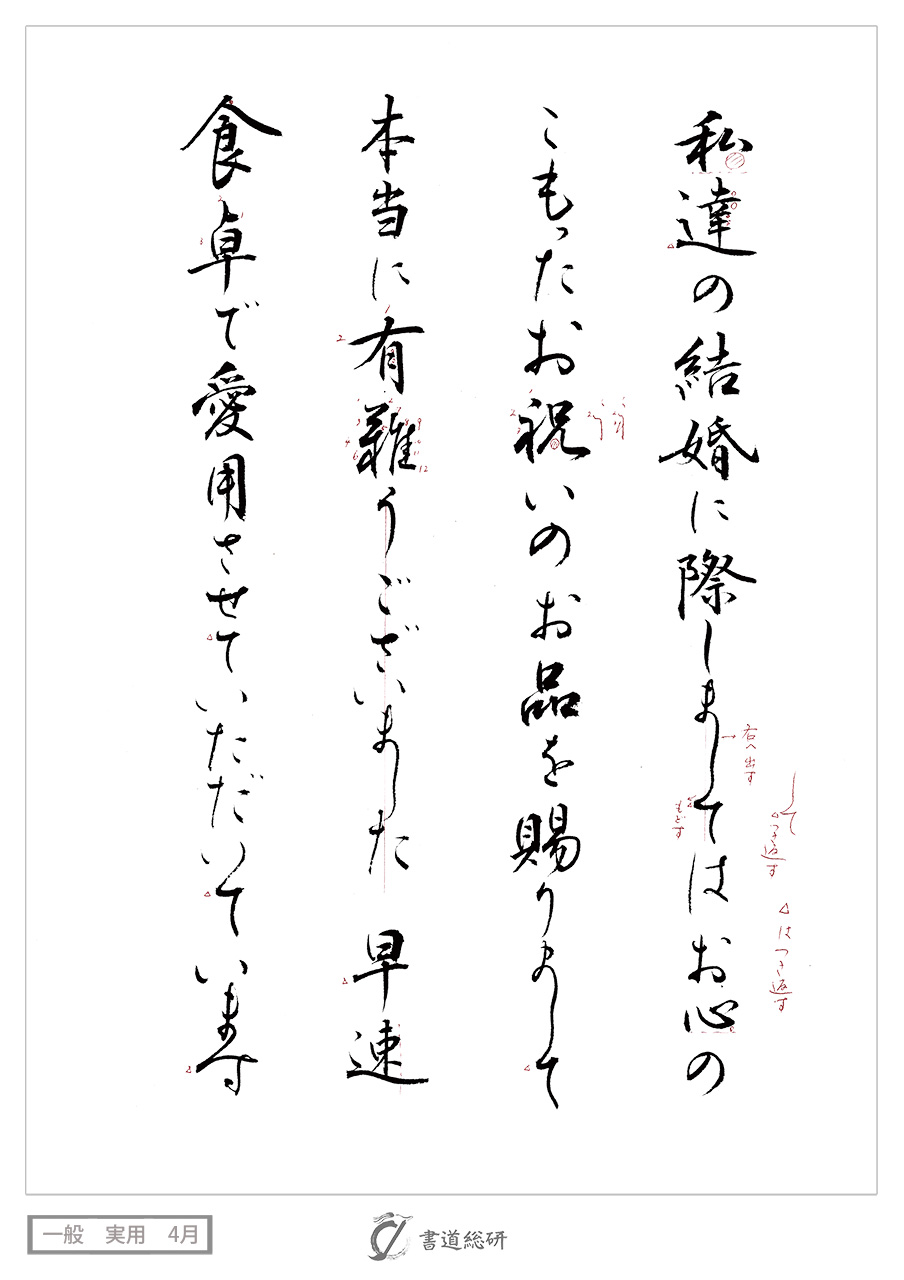 私達の結婚に際しましてはお心の
こもったお祝いのお品を賜りまして
本当に有難うございました 早速
食卓で愛用させていただいています
右へ出す
もどす
して
△つき返す
△はつき返す
一般 実用 4月
書道総研